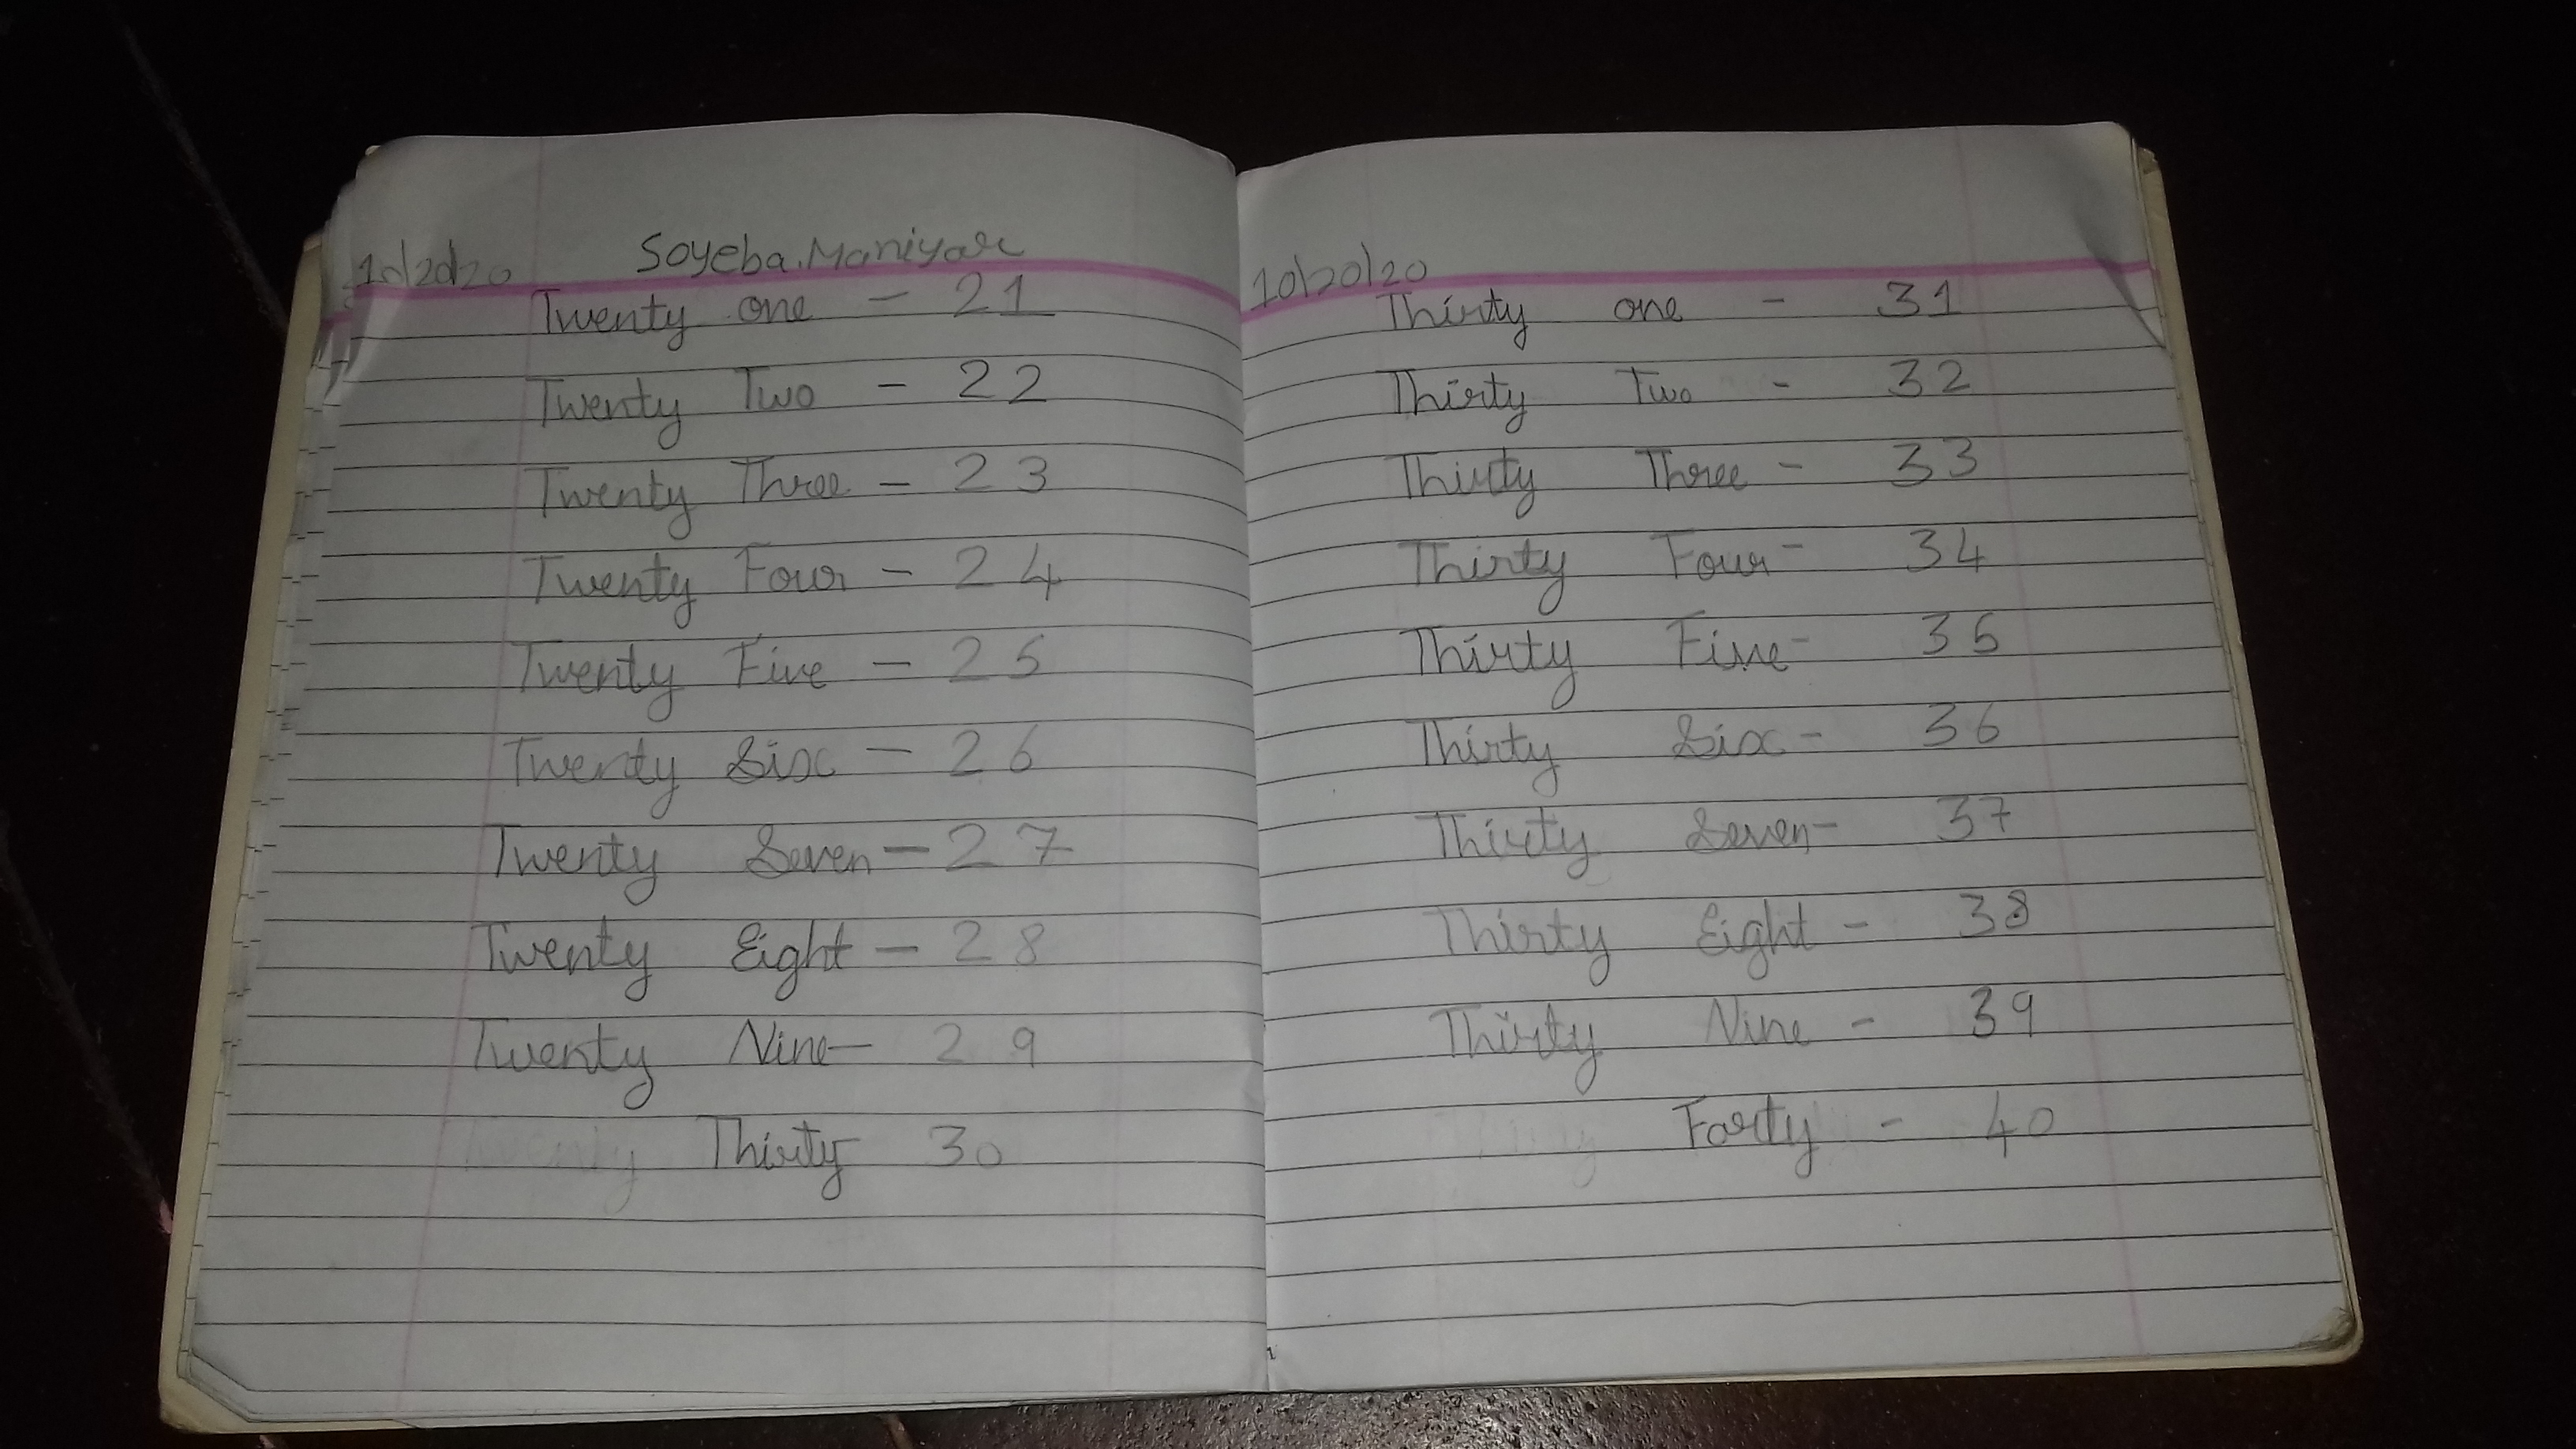 10/20/20 Soyeba.Maniyar
Twenty one - 21
Twenty Two - 22
Twenty Three - 23
Twenty Four - 24
Twenty Five - 25
Twenty Six - 26
Twenty Seven - 27
Twenty Eight - 28
Twenty Nine - 29
Twenty Thirty 30
10/20/20
Thirty one - 31
Thirty Two - 32
Thirty Three - 33
Thirty Four - 34
Thirty Five - 35
Thirty Six - 36
Thirty Seven - 37
Thirty Eight - 38
Thirty Nine - 39
Forty - 40